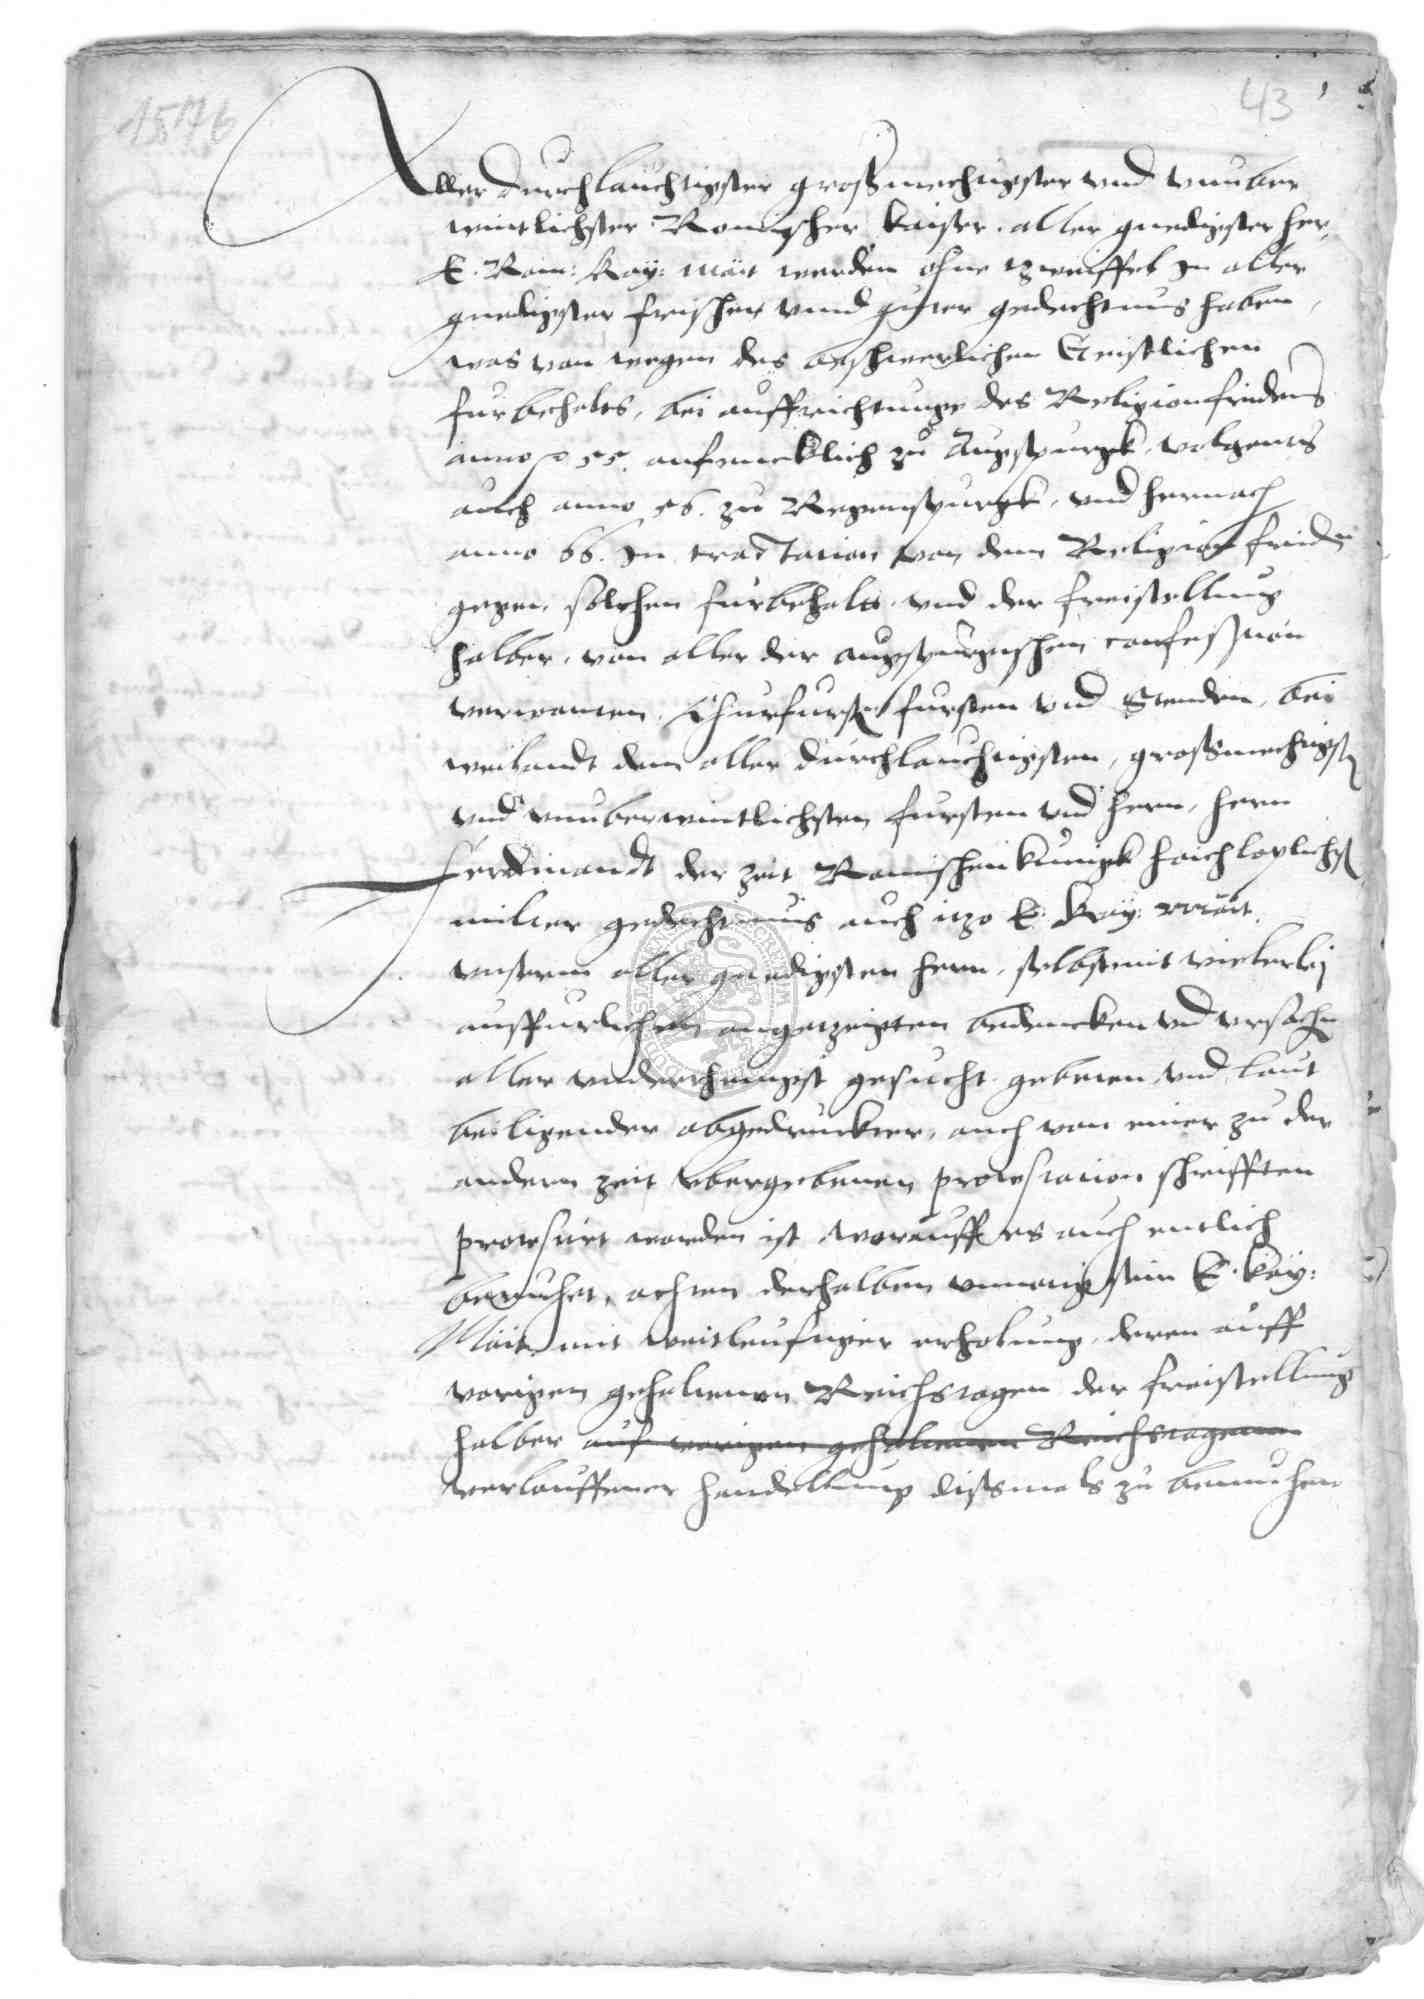 1576
43
Aller Durchlauchtigster großmechtigster vnd vnuber
wintlichster Romischer Kaiser. aller gnedigster her,
E. Rom: Kay: Mait werden ohne zweiffel In aller
gnedigster frischer vnnd guter gedechtnus haben,
was von wegen des beschwerlichen Geistlichen
furbehalts, bei auffrichtunge des Religionfridens
anno 55. anfencklich zu Augspurgk, volgents
auch anno 56. zu Regenspurgk, vnd hernach
anno 66. In tractation von dem Religion friden
gegen, solchen furbehalts vnd der freistellung
halber, von aller der augspurgischen confession
verwanten, Churfursten fursten vnd Stenden, bei
weilandt dem aller durchlauchtigsten, großmechtigsten
vnd vnuberwintlichsten fursten vnd hern, hern
Ferdinandt der zeit Romischen kunigk hochloblichster
milter gedechtnus auch itzo E: Kay: Mait.
vnserm aller gnedigsten hern, selbst mit vielerlej
ausfurlichen angezeigten bedencken vnd vrsachen
aller vnderthenigst gesucht gebeten vnd laut
beiligender abgedruckter, auch von einer zu der
andern zeit vbergebenen protestation schrifften
protestirt worden ist, worauff es auch entlich
beruhet, achten derhalben vnnotig sein E. Kay:
Mait mit weitleuftiger erholung, deren auff
vorigen gehaltenen Reichstagen der freistellung
halber auf vorigen gehaltenen Reichstagenn
verlauffener handellung dißmals zu bemuhen